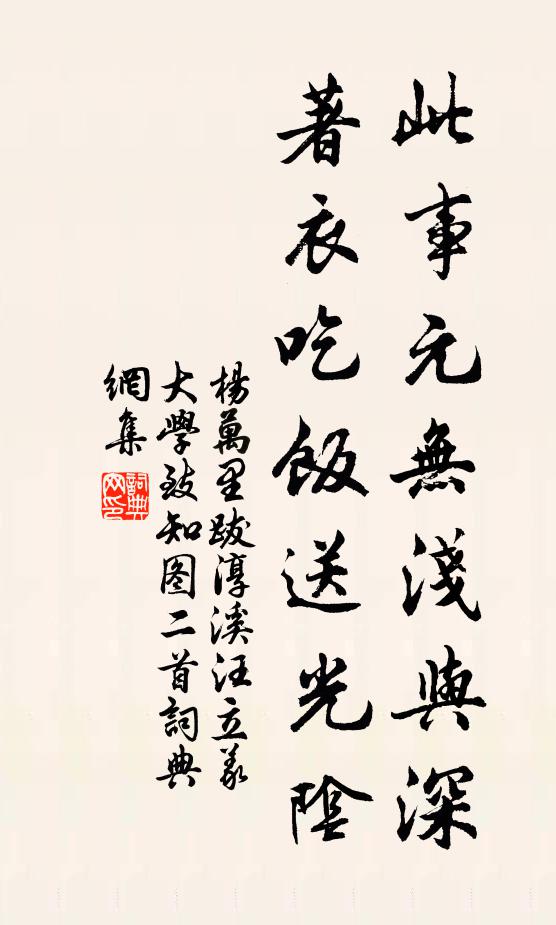 此事元無淺與深
著衣吃飯送光陰
楊萬里跋淳溪汪立義
大學致知图二首詞典
網集
詞典網印